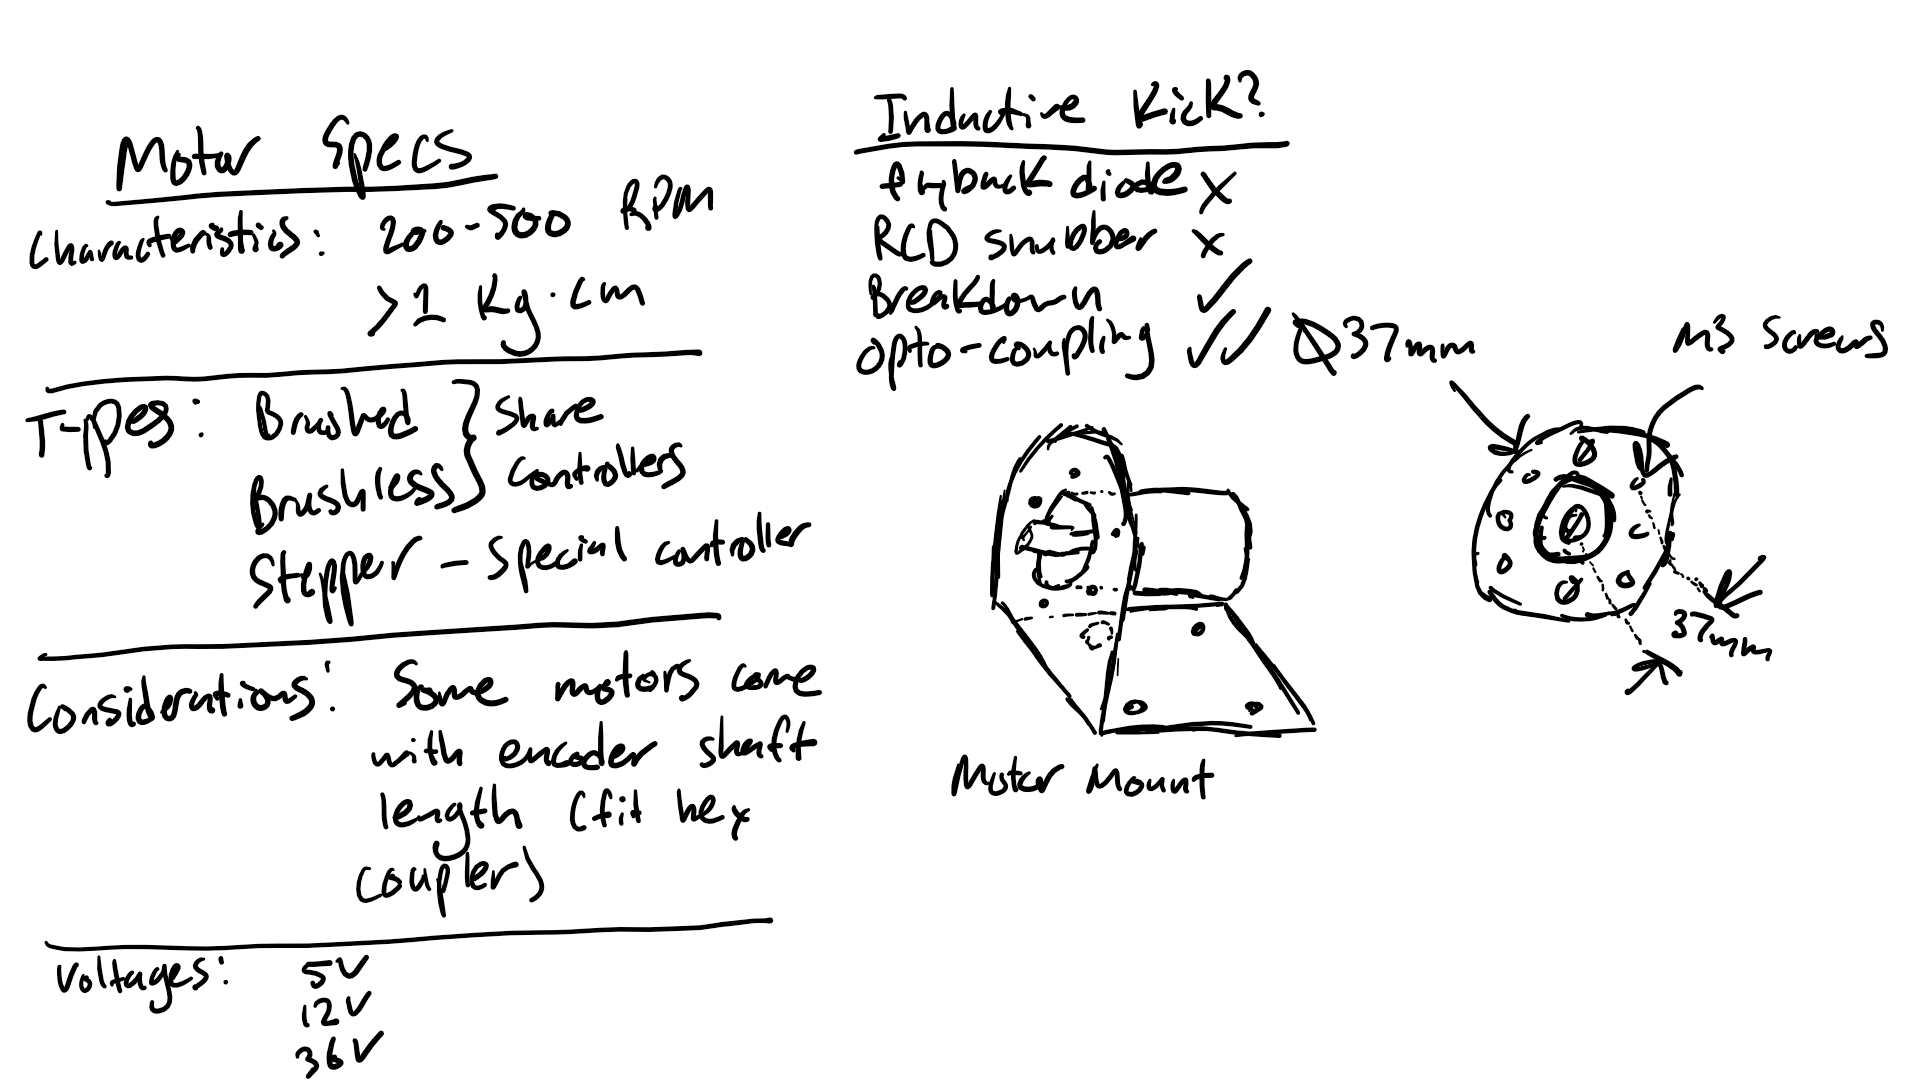 Motor Specs
Characteristics: 200-500 RPM
>1 Kg·cm
Types: Brushed } Share
Brushless } Controllers
Stepper - Special controller
Considerations: Some motors come
with encoder shaft
length (fit hex
coupler)
Voltages: 5V
12V
36V
Inductive Kick?
flyback diode x
RCD snubber x
Breakdown ✓
opto-coupling ✓✓
Ø37mm
M3 Screws
37mm
Motor Mount